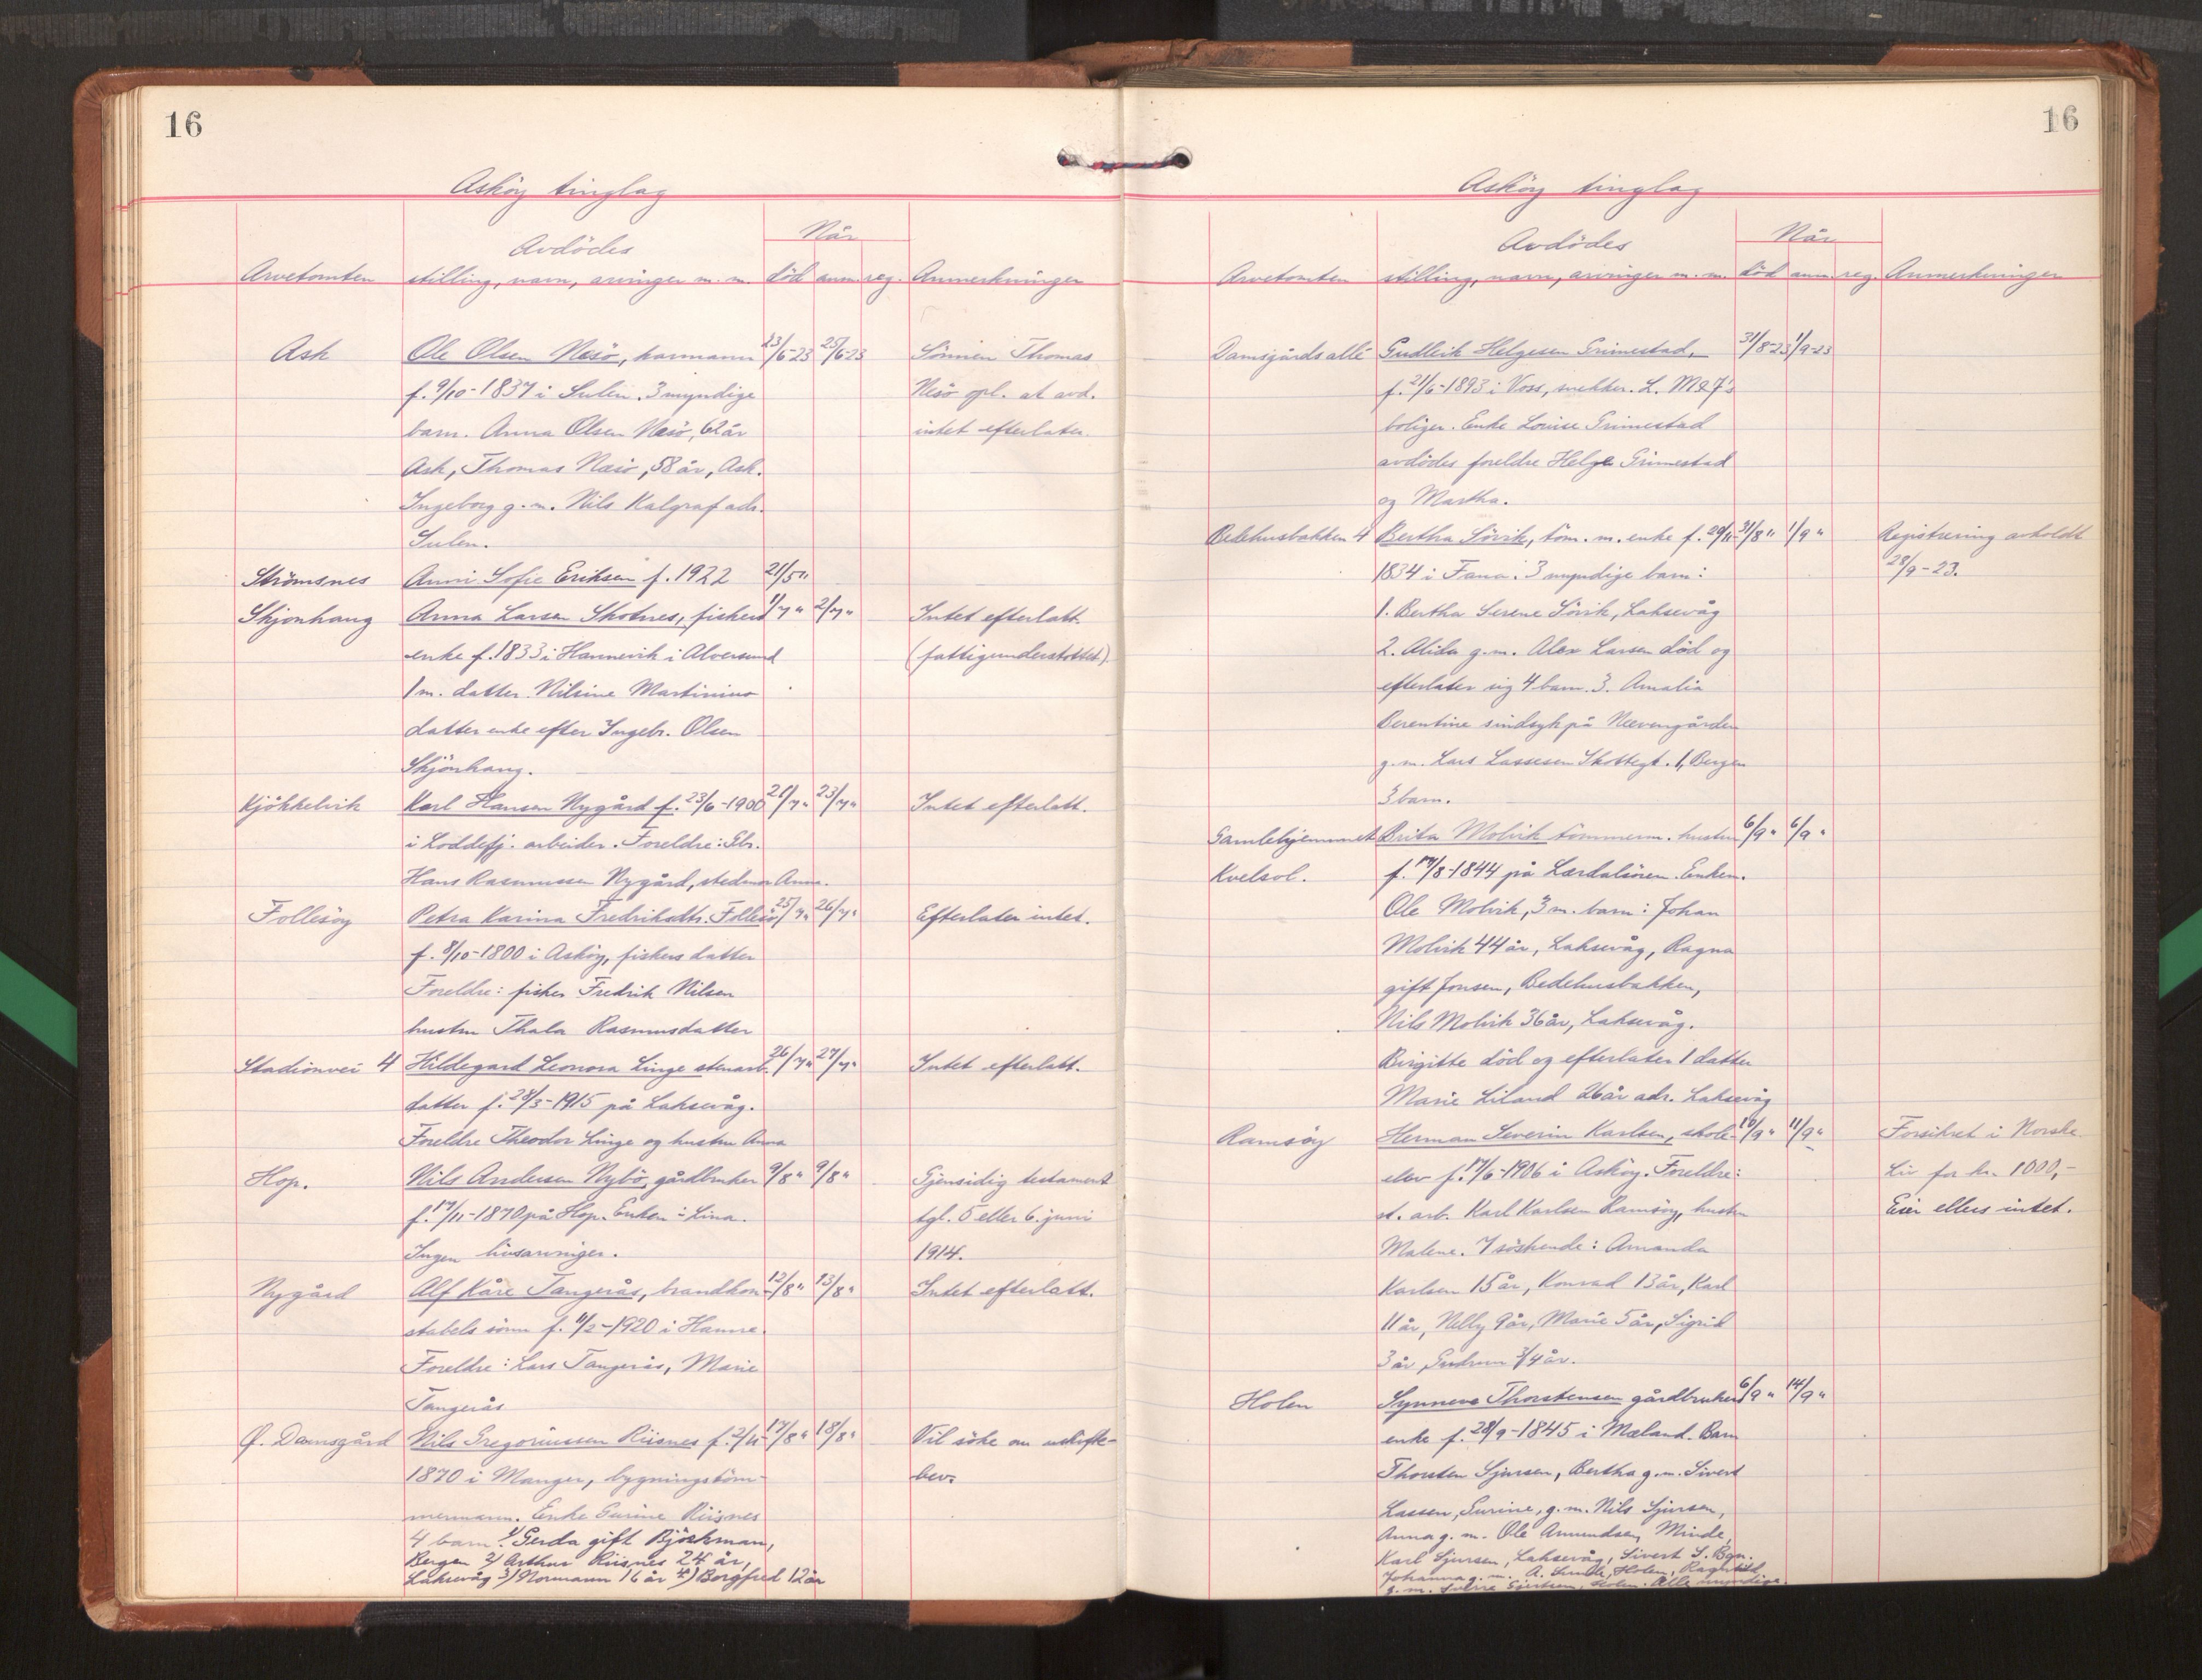 16
Asköy tinglag
Når
Avdödes
Arvetomten stilling, navn, arvinger m. m. död anm. reg. Anmerkninger
Ask Ole Olsen Nesö, kårmann 23/6-23 25/6-23 Sönnen Thomas
f. 9/10-1837 i Sulen. 3 myndige Nesö opl. at avd.
barn. Anna Olsen Nesö, 62 år intet efterlater.
Ask, Thomas Nesö, 58 år, Ask.
Ingeborg g. m. Nils Kalgraf adr.
Sulen.
Strömsnes Anni Sofie Eriksen f. 1922 21/5"
Skjonhaug Anna Larsen Skotnes, fiskers 1/7" 2/7" Intet efterlatt.
enke f. 1833 i Hannevik i Alversund (fattigunderstöttet).
1 m. datter. Nilsine Martinius
datter enke efter Ingebr. Olsen
Skjönhaug.
Kjökkelvik Karl Hansen Nygård f. 23/6-1900 21/7" 23/7" Intet efterlatt.
i Loddefj. arbeider. Foreldre: Gbr.
Hans Rasmussen Nygård, stedmor Anna.
Follesöy Petra Karina Fredriksdtr. Follesö 25/7" 26/7" Efterlater intet.
f. 8/10-1800 i Asköy, fiskers datter
Foreldre: fisker Fredrik Nilsen
hustru Thala Rasmusdatter
Stadionvei 4 Hildegard Leonora Linge stenarb. 26/7" 27/7" Intet efterlatt.
datter f. 28/3-1915 på Laksevåg.
Foreldre Theodor Linge og hustru Anna
Hop. Nils Andersen Nybö, gårdbruker 9/8" 9/8" Gjensidig testament
f. 17/11-1870 på Hop. Enken: Lina. tgl. 5 eller 6. juni
Ingen livsarvinger. 1914.
Nygård Alf Kåre Tangerås, brandkon- 12/8" 13/8" Intet efterlatt.
stabels sönn f. 11/2-1920 i Hamre.
Foreldre: Lars Tangerås, Marie
Tangerås
Ø. Damsgård Nils Gregoriussen Riisnes f. 2/4- 17/8" 18/8" Vil söke om uskifte-
1870 i Manger, bygningstöm- bev.
mermann. Enke Gurine Riisnes
4 barn: 1/ Gerda gift Björkman,
Bergen 2/ Arthur Riisnes 24 år,
Laksevåg 3/ Normann 16 år 4/ Borgfred 12 år
16
Asköy tinglag
Når
Avdödes
Arvetomten stilling, navn, arvinger m. m. död anm. reg. Anmerkninger
Damsgårds allé Gudleik Helgesen Grimestad, 31/8-23 1/9-23
f. 21/6-1893 i Voss, snekker. L. M & J's
boliger. Enke Louise Grimestad
avdödes foreldre Helge Grimestad
og Martha.
Bedehusbakken 4 Bertha Sörvik, töm. m. enke f. 29/11- 31/8" 1/9" Registrering avholdt
1834 i Fana. 3 myndige barn: 28/9-23.
1. Bertha Serene Sörvik, Laksevåg
2. Alida g. m. Alex Larsen död og
efterlater sig 4 barn. 3. Amalia
Berentine sindsyk på Neevengården
g. m. Lars Lassesen Skottegt. 1, Bergen
3 barn.
Gamlehjemmet Brita Molvik tömmerm. hustru 6/9" 6/9"
Kvelsol. f. 17/8-1844 på Lærdalsören. Enkem.
Ole Molvik, 3 m. barn: Johan
Molvik 44 år, Laksevåg, Ragna
gift Jonsen, Bedehusbakken,
Nils Molvik 36 år, Laksevåg.
Birgitte död og efterlater 1 datter
Marie Liland 26 år adr. Laksevåg
Ramsöy Herman Severin Karlsen, skole- 10/9" 11/9" Forsikret i Norske
elev f. 17/6-1906 i Asköy. Foreldre: Liv for kr. 1000,-
st. arb. Karl Karlsen Ramsöy, hustru Eier ellers intet.
Malene. 7 söskende: Amanda
Karlsen 15 år, Konrad 13 år, Karl
11 år, Nelly 9 år, Marie 5 år, Sigrid
3 år, Gudrun 3/4 år.
Holen Synneve Thorstensen gårdbrukers 6/9" 14/9"
enke f. 28/9-1845 i Mæland. Barn
Thorsten Sjursen, Bertha g. m. Sivert
Lassen, Gurine, g. m. Nils Sjursen,
Anna g. m. Ole Amundsen, Minde,
Karl Sjursen, Laksevåg, Sivert S. Bgn.
Johanna g. m. A. Holen, Ragnhild
g. m. Holen. Alle myndige.